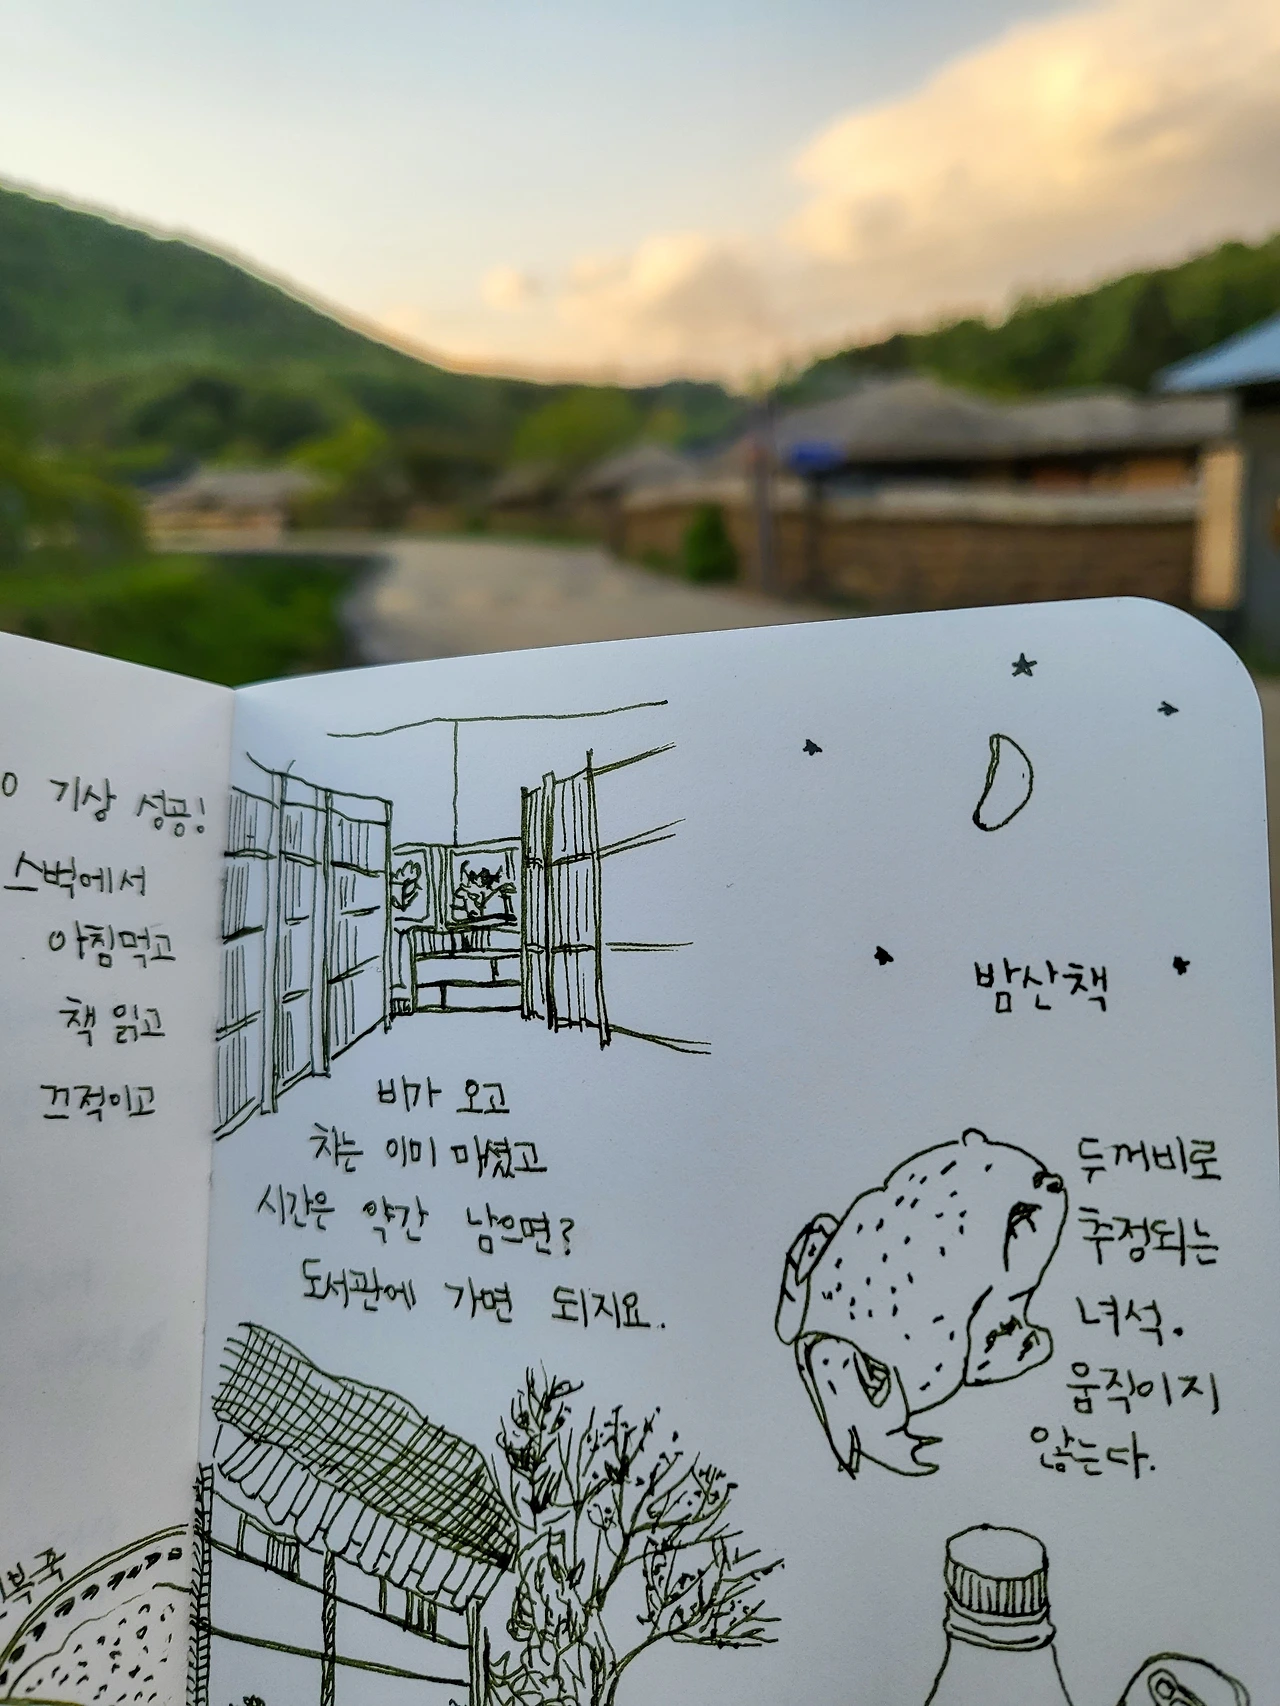 기상 성공!
스벅에서
아침먹고
책 읽고
끄적이고
비가 오고
차는 이미 마셨고
시간은 약간 남으면?
도서관에 가면 되지요.
밤산책
두꺼비로
추정되는
녀석.
움직이지
않는다.